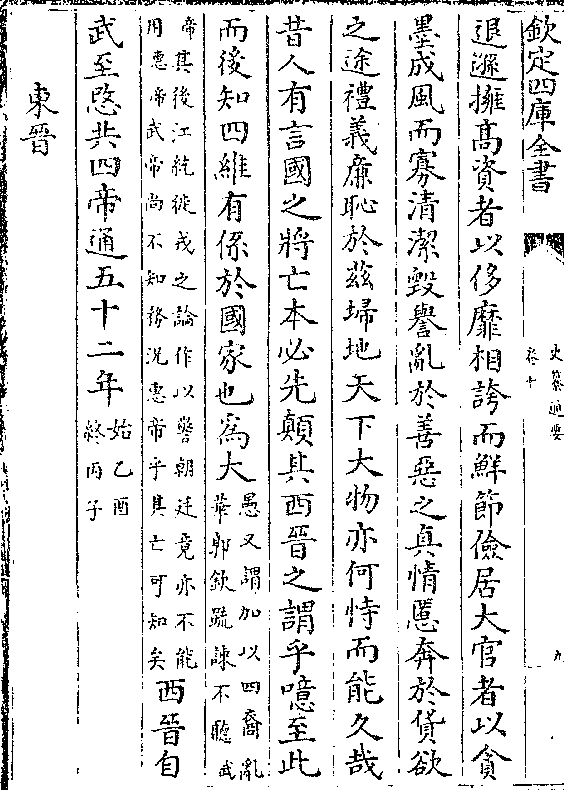 欽定四庫全書
史纂通要
卷十
九
退遜擁髙資者以侈靡相誇而鮮節儉居大官者以貪
墨成風而寡清潔毀譽亂於善惡之真情慝奔於貨欲
之途禮義亷恥於兹埽地天下大物亦何恃而能久哉
昔人有言國之將亡本必先顛其西晉之謂乎噫至此
而後知四維有係於國家也為大
愚又謂加以四裔亂
華郭欽䟽諫不聽武
帝其後江統徙戎之論作以警朝廷竟亦不能
用惠帝武帝尚不知務況惠帝乎其亡可知矣
西晉自
武至愍共四帝通五十二年
始乙酉
終丙子
東晉